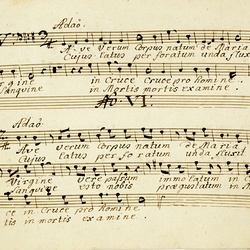 Adaõ.
A: ve Verum Corpus natum de Maria
Cujus latus per foratum unda flux
gine in Cruce Cruce pro Homine.
Sanguine in Mortis mortis examine.
No. VI.
Adaõ.
Ave verum Corpus natum de Maria
Cujus latus per fo ratum unda fluxit
Virgine Vere passum immolatum in
Sanguine esto nobis præguslatum in M
ce in Cruce pro Homine.
tis in mortis examine.